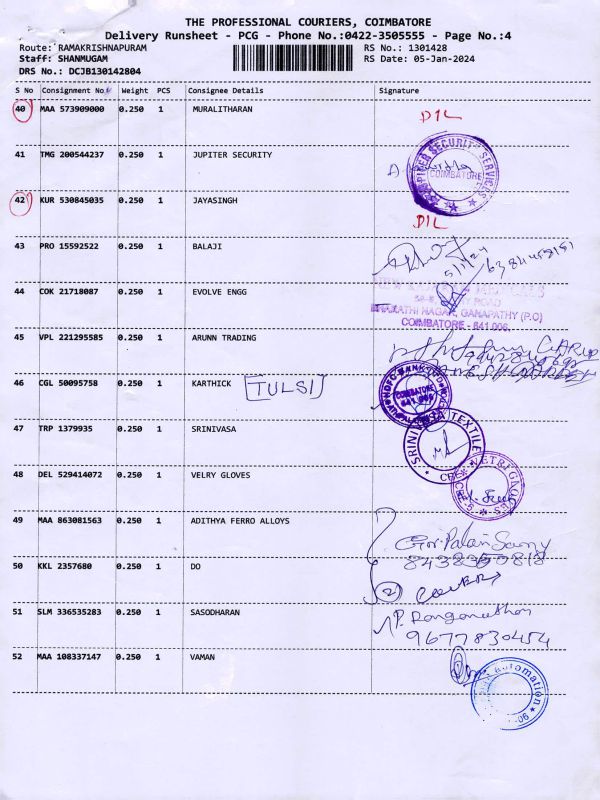 THE PROFESSIONAL COURIERS, COIMBATORE
Delivery Runsheet - PCG - Phone No.:0422-3505555 - Page No.:4
Route: RAMAKRISHNAPURAM RS No.: 1301428
Staff: SHANMUGAM RS Date: 05-Jan-2024
DRS No.: DCJB130142804
S No Consignment No. Weight PCS Consignee Details Signature
40 MAA 573909000 0.250 1 MURALITHARAN DIL
41 TMG 200544237 0.250 1 JUPITER SECURITY
JUPITER SECURITY SERVICES COIMBATORE
42 KUR 530845035 0.250 1 JAYASINGH
DIL
43 PRO 15592522 0.250 1 BALAJI
5/1/24
44 COK 21718087 0.250 1 EVOLVE ENGG
ROAD
NAGAR, GANAPATHY (P.O)
COIMBATORE - 641 006.
45 VPL 221295585 0.250 1 ARUNN TRADING
46 CGL 50095758 0.250 1 KARTHICK TULSI
HDFC BANK LTD
COIMBATORE
641 006
47 TRP 1379935 0.250 1 SRINIVASA
SRINIVASA TEXTILE
CBE
48 DEL 529414072 0.250 1 VELRY GLOVES
CBE-6
49 MAA 863081563 0.250 1 ADITHYA FERRO ALLOYS
50 KKL 2357680 0.250 1 DO
2
51 SLM 336535283 0.250 1 SASODHARAN
P. Ranganathan
9677830454
52 MAA 108337147 0.250 1 VAMAN
Automation